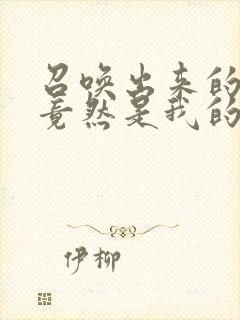 召唤出来的
竟然是我的
伊柳